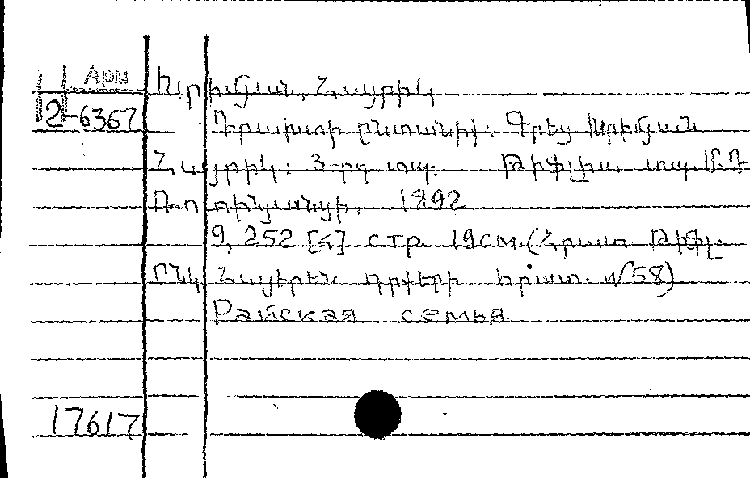 Арм
2-6367
Խրիմյան, Հայրիկ
Դրախտի ընտանիք։ Գրեց Խրիմյան
Հայրիկ։ 3-րդ տպ. Թիֆլիս, տպ. Մ.Դ.
Ռոտինյանցի, 1892
9, 252 [4] стр. 19см. (Հրատ. Թիֆլ.
Ընկ. Հայերեն գրքերի հրատ. №58)
Райская семья
17617